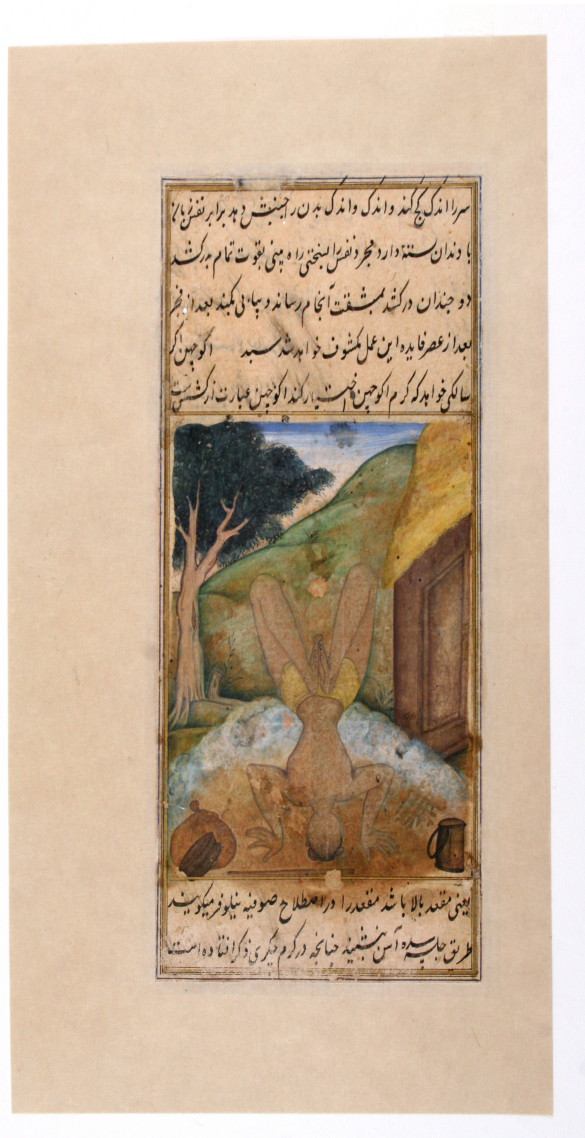 سررا اندک کج کند و اندک و اندک بدن را جنبش دهد برابر نفس زبان
با دندان بسته دارد و مجرد نفس را بسختی راه بینی بقوت تمام بدر کشد
دو چندان در کشد بمشقت آنجام رساند و پیاپی بکند بعد از فجر
بعد از عصر فایده این عمل مکشوف خواهد شد سبد اکوچین کر
سالکی خواهد که کرم اکوچین اختیار کند اکوچین عبارت از کشش
یعنی مقعد بالا باشد مقعد را در اصطلاح صوفیه نیلوفر میکویند
طریق جلسه سده آسن بنشیند چنانچه در کرم دیکری ذکر افتاده است